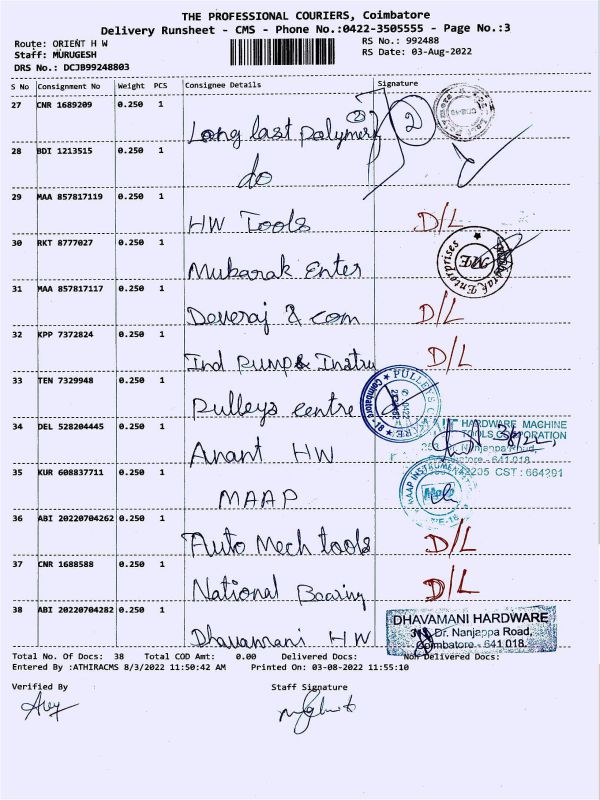 THE PROFESSIONAL COURIERS, Coimbatore
Delivery Runsheet - CMS - Phone No.:0422-3505555 - Page No.:3
Route: ORIENT H W
RS No.: 992488
Staff: MURUGESH
RS Date: 03-Aug-2022
DRS No.: DCJB99248803
S No Consignment No Weight PCS Consignee Details Signature
27 CNR 1689209 0.250 1 Long last polymer (2) 2
28 BDI 1213515 0.250 1 do
29 MAA 857817119 0.250 1 HW Tools D/L
30 RKT 8777027 0.250 1 Mubarak Enter
Mubarak Enterprises ME
31 MAA 857817117 0.250 1 Deveraj & com D/L
32 KPP 7372824 0.250 1 Ind Pump & Instru D/L
33 TEN 7329948 0.250 1 Pulleys centre
PULLEYS CENTRE Coimbatore
34 DEL 528204445 0.250 1 Anant HW
HARDWARE MACHINE
TOOLS CORPORATION
Nanjappa Road,
Coimbatore - 641 018
CST : 664291
35 KUR 608837711 0.250 1 MAAP
MAAP INSTRUMENTATION
36 ABI 20220704262 0.250 1 Auto Mech tools D/L
37 CNR 1688588 0.250 1 National Bearing D/L
38 ABI 20220704282 0.250 1 Dhavamani HW
DHAVAMANI HARDWARE
Dr. Nanjappa Road,
Coimbatore - 641 018.
Total No. Of Docs: 38 Total COD Amt: 0.00 Delivered Docs: Non Delivered Docs:
Entered By :ATHIRACMS 8/3/2022 11:50:42 AM Printed On: 03-08-2022 11:55:10
Verified By Staff Signature